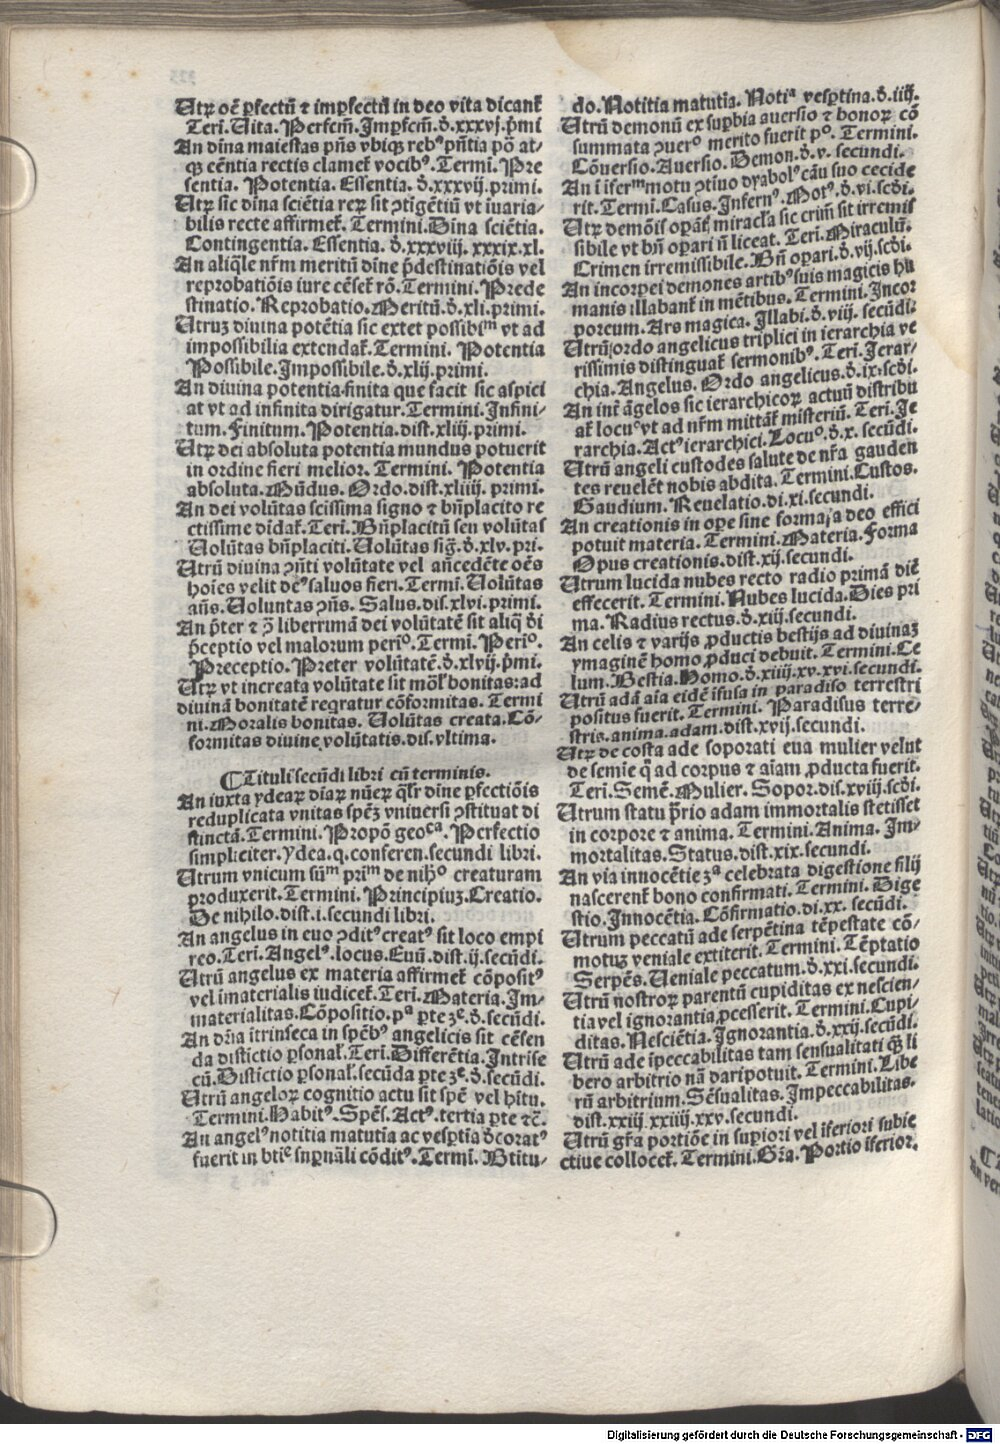 Utrꝫ oē ꝑfectū ⁊ imꝑfectū in deo vita dicant̄
Teri. Uita. Perfcm̄. Imꝑfcm̄. ḋ. xxxvj. ṗmi
An dīna maiestas pn̄s vbiqꝫ rebꝰ pn̄tia pō at-
qꝫ cēntia rectis clamet̄ vocibꝰ. Termī. Pre
sentia. Potentia. Essentia. ḋ. xxxvij. primi.
Utrꝫ sic dīna sciētia reꝝ sit ↄtīgētiū vt īuaria-
bilis recte affirmet̄. Termini. Dīna sciētia.
Contingentia. Essentia. ḋ. xxxviij. xxxix. xl.
An aliqḋe nr̄m meritū dīne p̄destinatiōis vel
reprobatiōis iure cēset̄ rō. Termini. Prede
stinatio. Reprobatio. Meritū. ḋ. xli. primi.
Utruꝫ diuina potētia sic extet possibiᵐ vt ad
impossibilia extendat̄. Termini. Potentia
Possibile. Impossibile. ḋ. xlij. primi.
An diuina potentia finita que facit sic aspici
at vt ad infinita dirigatur. Termini. Infini-
tum. Finitum. Potentia. dist. xliij. primi.
Utrꝫ dei absoluta potentia mundus potuerit
in ordine fieri melior. Termini. Potentia
absoluta. Mūdus. Ordo. dist. xliiij. primi.
An dei volūtas scissima signo ⁊ bn̄placito re
ctissime diḋat̄. Teri. Bn̄placitū seu volūtas
Uolūtas bn̄placiti. Uolūtas sig̃. ḋ. xlv. pri.
Utrū diuina ↄn̄ti volūtate vel an̄cedēte oēs
hoīes velit deꝰ saluos fieri. Termī. Uolūtas
an̄s. Uoluntas ↄn̄s. Salus. dis. xlvi. primi.
An p̄ter ⁊ ↄ̄ liberrimā dei volūtatē sit aliq̇ ḋi
p̄ceptio vel malorum periᵒ. Termī. Periᵒ.
Preceptio. Preter volūtatē. ḋ. xlvij. ṗmi.
Utrꝫ vt increata volūtate sit mōł bonitas: ad
diuinā bonitatē reqratur cōformitas. Termi
ni. Moralis bonitas. Uolūtas creata. Cō-
formitas diuine volūtatis. dis. vltima.
⸿Tituli secūdi libri cū terminis.
An iuxta ydeaꝝ diaꝝ nūeꝝ q̄lr dīne ꝑfectiōis
reduplicata vnitas spēꝫ vniuersi ↄstituat di
stinctā. Termini. Propō geoᶜᵃ. Perfectio
simpliciter. ydea. q. conferen. secundi libri.
Utrum vnicum sūᵐ priᵐ de niħᵒ creaturam
produxerit. Termini. Principiuꝫ. Creatio.
De nihilo. dist. i. secundi libri.
An angelus in euo ↄditꝰ creatꝰ sit loco empi
reo. Teri. Angelꝰ. locus. Euū. dist. ij. secūdi.
Utrū angelus ex materia affirmet̄ cōpositꝰ
vel īmaterialis iudicet̄. Teri. Materia. Im-
materialitas. Cōpositio. pᵃ ꝑte ʒᵉ. ḋ. secūdi.
An dr̄ia ītrinseca in spēbꝰ angelicis sit cēsen
da distictio ꝑsonał. Teri. Differētia. Intrīse
cū. Distictio ꝑsonał. secūda ꝑte ʒᵉ. ḋ. secūdi.
Utrū angeloꝝ cognitio actu sit spē vel hītu.
Termini. Habitꝰ. Spēs. Actꝰ. tertia ꝑte ⁊c̄.
An angelꝰ notitia matutīa ac veſꝑtīa ḋcoratꝰ
fuerit in btīᵉ snꝑnāli cōditꝰ. Termī. Btītu-
do. Notitia matutīa. Notiᵃ veſꝑtina. ḋ. iiij.
Utrū demonū ex suꝑbia auersio ⁊ honoꝝ cō
summata ↄuerᵒ merito fuerit pᵒ. Termini.
Cōuersio. Auersio. Demon. ḋ. v. secundi.
An ī īferᵐ motu ↄtīuo dyabolꝰ cāu suo cecide
rit. Termī. Casus. Infernꝰ. Motꝰ. ḋ. vi. scḋi.
Utrꝫ demōis oꝑās miracla sic crim̄ sit irremis
sibile vt bn̄ oꝑari n̄ liceat. Teri. Miraculū.
Crimen irremissibile. Bn̄ oꝑari. ḋ. vij. scḋi.
An incorpei demones artibꝰ suis magicis hu
manis illabant̄ in mētibus. Termini. Incor
poreum. Ars magica. Illabi. ḋ. viij. secūdi.
Utrū ordo angelicus triplici in ierarchia ve
rissimis distinguat̄ sermonibꝰ. Teri. Ierar-
chia. Angelus. Ordo angelicus. ḋ. ix. scḋi.
An int̄ āgelos sic ierarchicoꝝ actuū distribu
at̄ locuᵒ vt ad nr̄m mittāt̄ misteriū. Teri. Je
rarchia. Actꝰ ierarchici. Locuᵒ. ḋ. x. secūdi.
Utrū angeli custodes salute de nr̄a gauden
tes reuelēt nobis abdita. Termini. Custos.
Gaudium. Reuelatio. di. xi. secundi.
An creationis in oꝑe sine forma a deo effici
potuit materia. Termini. Materia. Forma
Opus creationis. dist. xij. secundi.
Utrum lucida nubes recto radio primā diē
effecerit. Termini. Nubes lucida. Dies pri
ma. Radius rectus. ḋ. xiij. secundi.
An celis ⁊ varijs ꝓductis bestijs ad diuinaꝫ
ymaginē homo ꝓduci debuit. Termini. Ce
lum. Bestia. Homo. ḋ. xiiij. xv. xvi. secundi.
Utrū adā aīa eidē īfusa in paradiso terrestri
positus fuerit. Termini. Paradisus terre-
stris. anima. adam. dist. xvij. secundi.
Utrꝫ de costa ade soporati eua mulier velut
de semīe q̄ ad corpus ⁊ aīam ꝓducta fuerit.
Teri. Semē. Mulier. Sopor. dis. xviij. scḋi.
Utrum statu p̄rio adam immortalis stetisset
in corpore ⁊ anima. Termini. Anima. Im-
mortalitas. Status. dist. xix. secundi.
An via innocētie ʒᵃ celebrata digestione filij
nascerent̄ bono confirmati. Termini. Dige
stio. Innocētia. Cōfirmatio. di. xx. secūdi.
Utrum peccatū ade serpētina tēpestate cō-
motuꝫ veniale extiterit. Termini. Tēptatio
Serpēs. Ueniale peccatum. ḋ. xxi. secundi.
Utrū nostroꝝ parentū cupiditas ex nescien-
tia vel ignorantia ꝓcesserit. Termini. Cupi-
ditas. Nesciētia. Ignorantia. ḋ. xxij. secūdi.
Utrū ade īpeccabilitas tam sensualitati qꝫ̄ li
bero arbitrio nā dari potuit. Termini. Libe
rū arbitrium. Sēsualitas. Impeccabilitas.
dist. xxiij. xxiiij. xxv. secundi.
Utrū gr̄a portiōe in suꝑiori vel īferiori subie
ctiue collocet̄. Termini. Gr̄a. Portio īferior.
Digitalisierung gefördert durch die Deutsche Forschungsgemeinschaft - DFG